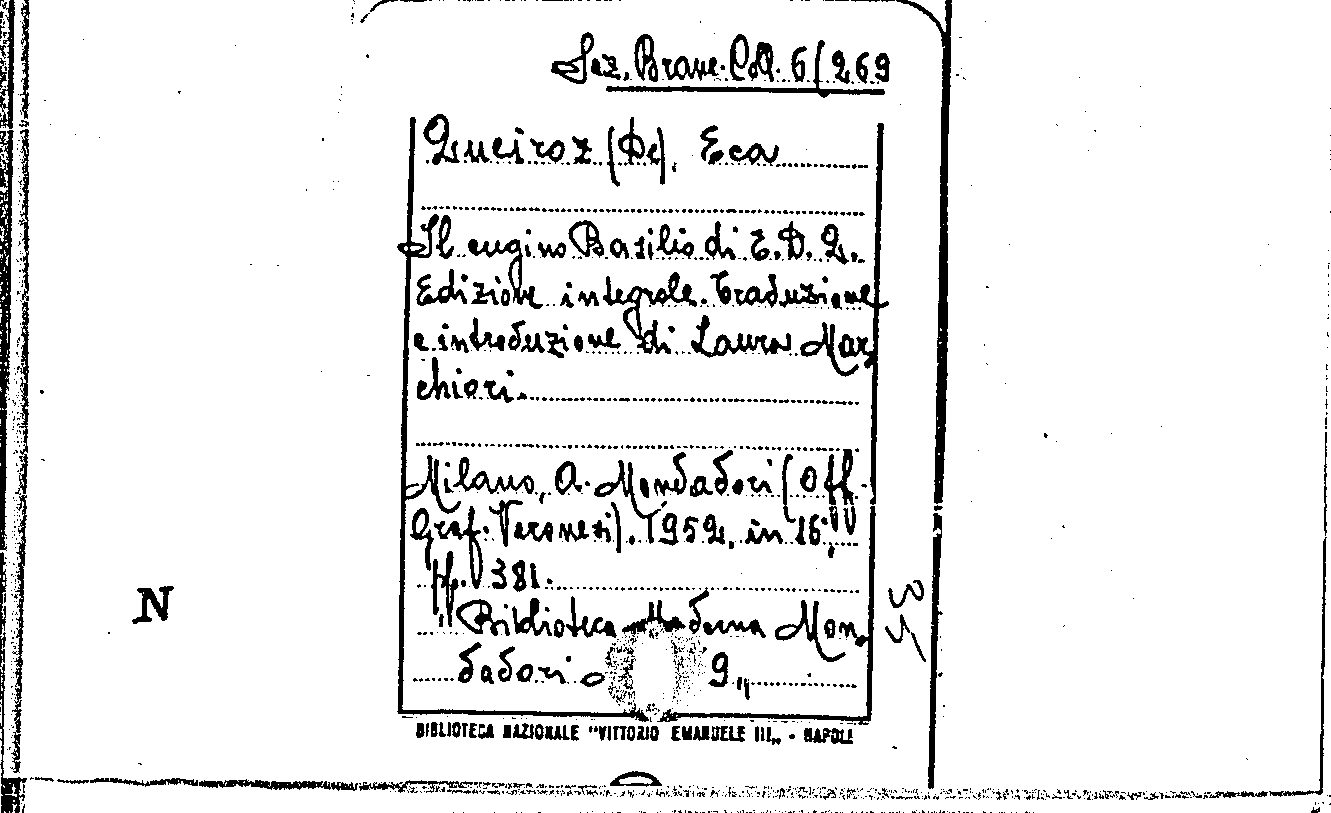 Sez. Branc. Coll. 6/269
Queiroz (De), Eca
Il cugino Basilio di E. D. Q.
Edizione integrale. Traduzione
e introduzione di Laura Mar-
chiori.
Milano, A. Mondadori (Off.
Graf. Veronesi), 1952, in 16°,
pp. 381.
"Biblioteca Moderna Mon-
dadori 9„
BIBLIOTECA NAZIONALE "VITTORIO EMANUELE III„ - NAPOLI
N
53